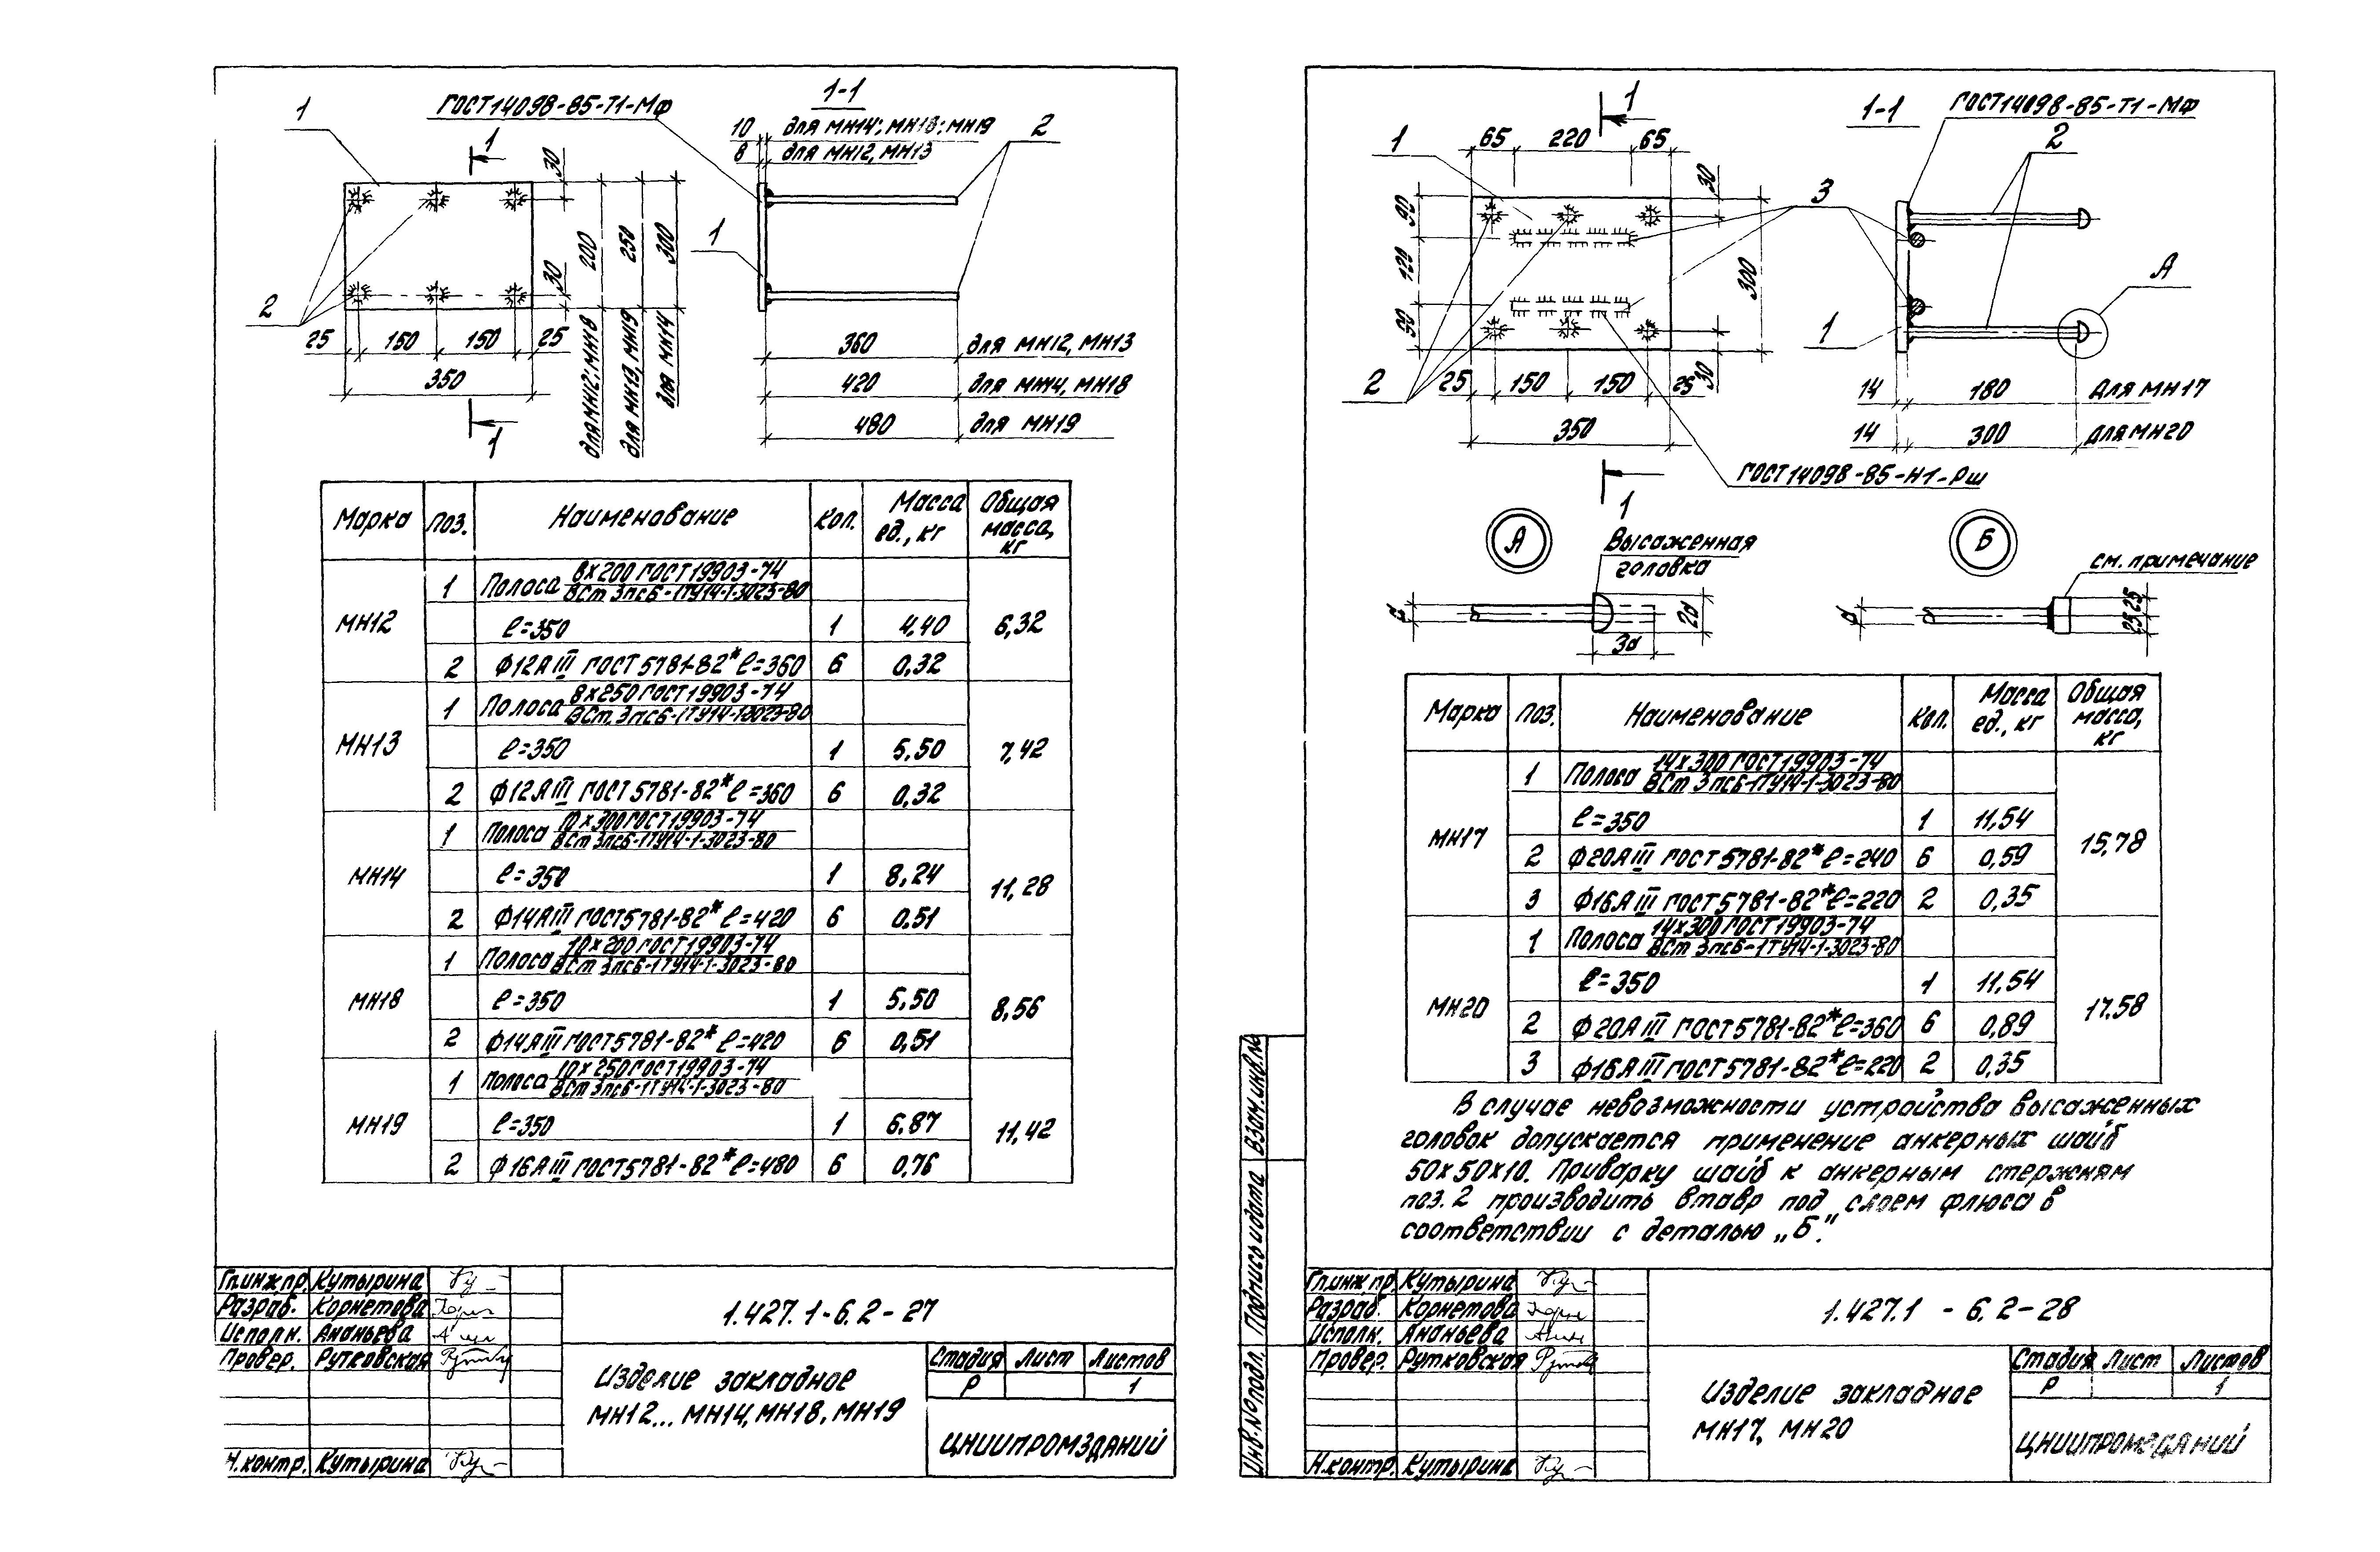 1
ГОСТ14098-85-Т1-Мф
1-1
10 для МН14; МН18; МН19
8 для МН12, МН13
2
1
30
30
200
250
300
для МН12; МН18
для МН13, МН19
для МН14
1
2
25 150 150 25
350
1
360 для МН12, МН13
420 для МН14, МН18
480 для МН19
Марка Поз. Наименование Кол. Масса ед., кг Общая масса, кг
МН12
1 Полоса 8х200 ГОСТ 19903-74
ВСт 3псБ-1ТУ14-1-3023-80
ℓ=350 1 4,40 6,32
2 Ф12АIII ГОСТ 5781-82* ℓ=360 6 0,32
МН13
1 Полоса 8х250 ГОСТ 19903-74
ВСт.3псБ-1ТУ14-1-3023-80
ℓ=350 1 5,50 7,42
2 Ф12АIII ГОСТ 5781-82* ℓ=360 6 0,32
МН14
1 Полоса 10х300 ГОСТ 19903-74
ВСт 3псБ-1ТУ14-1-3023-80
ℓ=350 1 8,24 11,28
2 Ф14АIII ГОСТ 5781-82* ℓ=420 6 0,51
МН18
1 Полоса 10х200 ГОСТ 19903-74
ВСт 3псБ-1ТУ14-1-3023-80
ℓ=350 1 5,50 8,56
2 Ф14АIII ГОСТ 5781-82* ℓ=420 6 0,51
МН19
1 Полоса 10х250 ГОСТ 19903-74
ВСт 3псБ-1ТУ14-1-3023-80
ℓ=350 1 6,87 11,42
2 Ф16АIII ГОСТ 5781-82* ℓ=480 6 0,76
Гл.инж.пр. Кутырина
Разраб. Корнетова
Исполн. Ананьева
Провер. Рутковская
Н.контр. Кутырина
1.427.1-6.2-27
Изделие закладное
МН12... МН14, МН18, МН19
Стадия Лист Листов
Р 1
ЦНИИПРОМЗДАНИЙ
1
1
65 220 65
30
90
120
90
300
30
3
2
25 150 150 25
350
1
1-1
ГОСТ14098-85-Т1-Мф
2
А
1
14 180 для МН17
14 300 для МН20
ГОСТ14098-85-Н1-Рш
А
Высаженная
головка
d
2d
3d
Б
см. примечание
d
25 25
Марка Поз. Наименование Кол. Масса ед., кг Общая масса, кг
МН17
1 Полоса 14х300 ГОСТ 19903-74
ВСт 3псБ-1ТУ14-1-3023-80
ℓ=350 1 11,54 15,78
2 Ф20АIII ГОСТ 5781-82* ℓ=240 6 0,59
3 Ф16АIII ГОСТ 5781-82* ℓ=220 2 0,35
МН20
1 Полоса 14х300 ГОСТ 19903-74
ВСт 3псБ-1ТУ14-1-3023-80
ℓ=350 1 11,54 17.58
2 Ф20АIII ГОСТ 5781-82* ℓ=360 6 0,89
3 Ф16АIII ГОСТ 5781-82* ℓ=220 2 0,35
В случае невозможности устройства высаженных
головок допускается применение анкерных шайб
50х50х10. Приварку шайб к анкерным стержням
поз. 2 производить втавр под слоем флюса в
соответствии с деталью „Б".
Взам.инв.№
Подпись и дата
Инв.№подл.
Гл.инж.пр. Кутырина
Разраб. Корнетова
Исполн. Ананьева
Провер. Рутковская
Н.контр. Кутырина
1.427.1 - 6.2-28
Изделие закладное
МН17, МН20
Стадия Лист Листов
Р 1
ЦНИИПРОМЗДАНИЙ